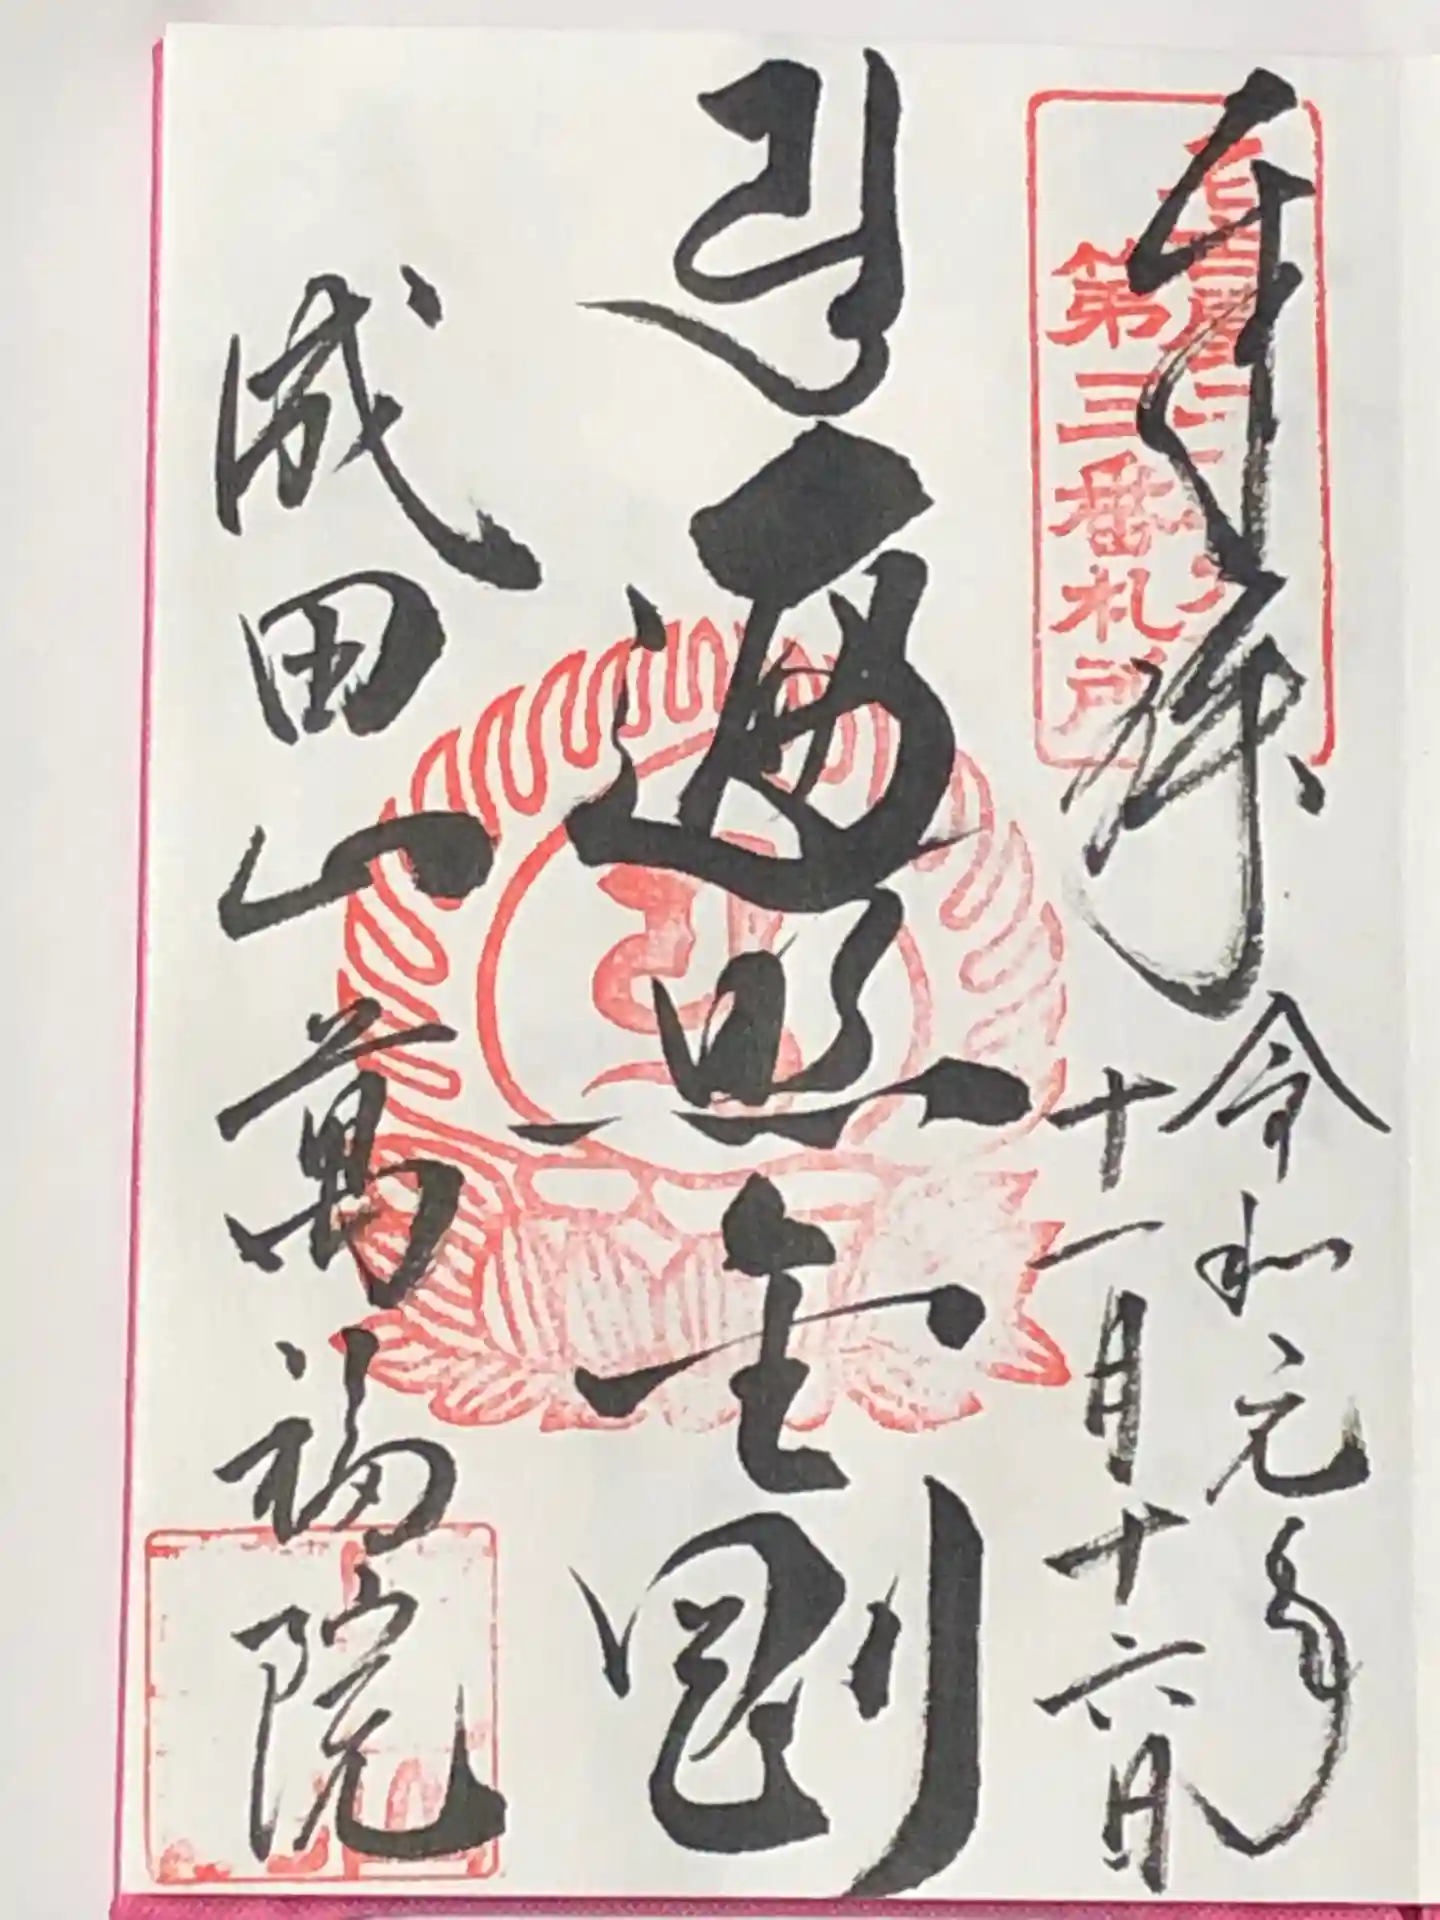 奉拝
令和元年
十一月十六日
第三番札所
遍照金剛
成田山萬福院